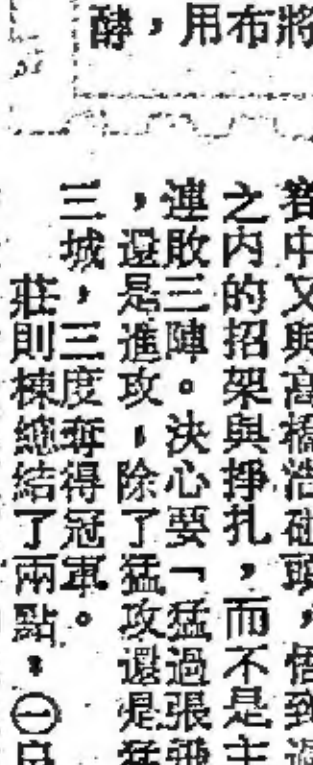 酵，用布將
賽中又與高橋浩碰頭，悟到過
之内的招架與掙扎，而不是主
連敗三陣。決心要「猛過張飛
，還是進攻，除了猛攻還是猛
三城，三度奪得冠軍。
莊則棟總結了兩點，㊀